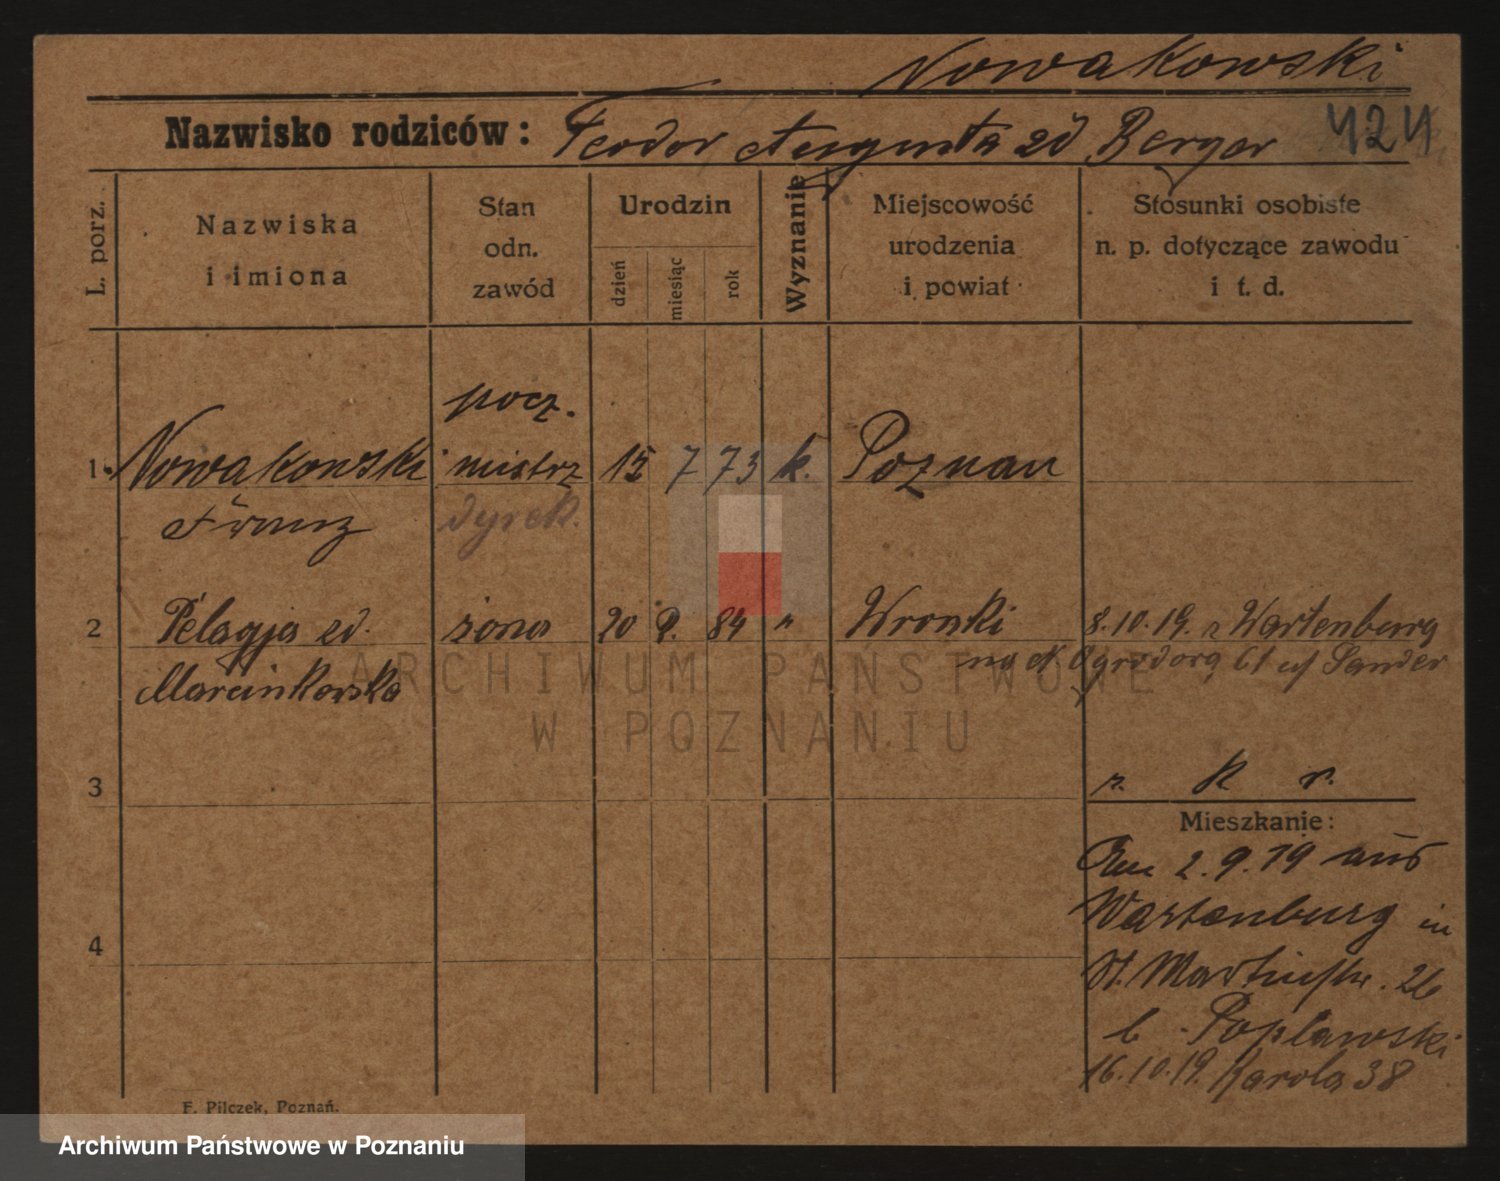 Nowakowski
Nazwisko rodziców: Teodor Augusta zd Berger 424
L. porz.
Nazwiska i imiona
Stan odn. zawód
Urodzin
dzień
miesiąc
rok
Wyznanie
Miejscowość urodzenia i powiat
Stosunki osobiste n. p. dotyczące zawodu i t. d.
pocz.
1. Nowakowski mistrz 15 7 73 k. Poznan
Franz dyrek.
2 Pelagja zd. żona 20 2. 84 " Wronki 8.10.19. z Wartenburg
Marcinkowska na Ogrodową Sander
3
z. k r.
Mieszkanie:
2.9.19 aus
Wartenburg in
4
St. Martinstr. 26
b. Popławski
16.10.19. Karola 38
F. Pilczek, Poznań.
ARCHIWUM PAŃSTWOWE
W POZNANIU
Archiwum Państwowe w Poznaniu